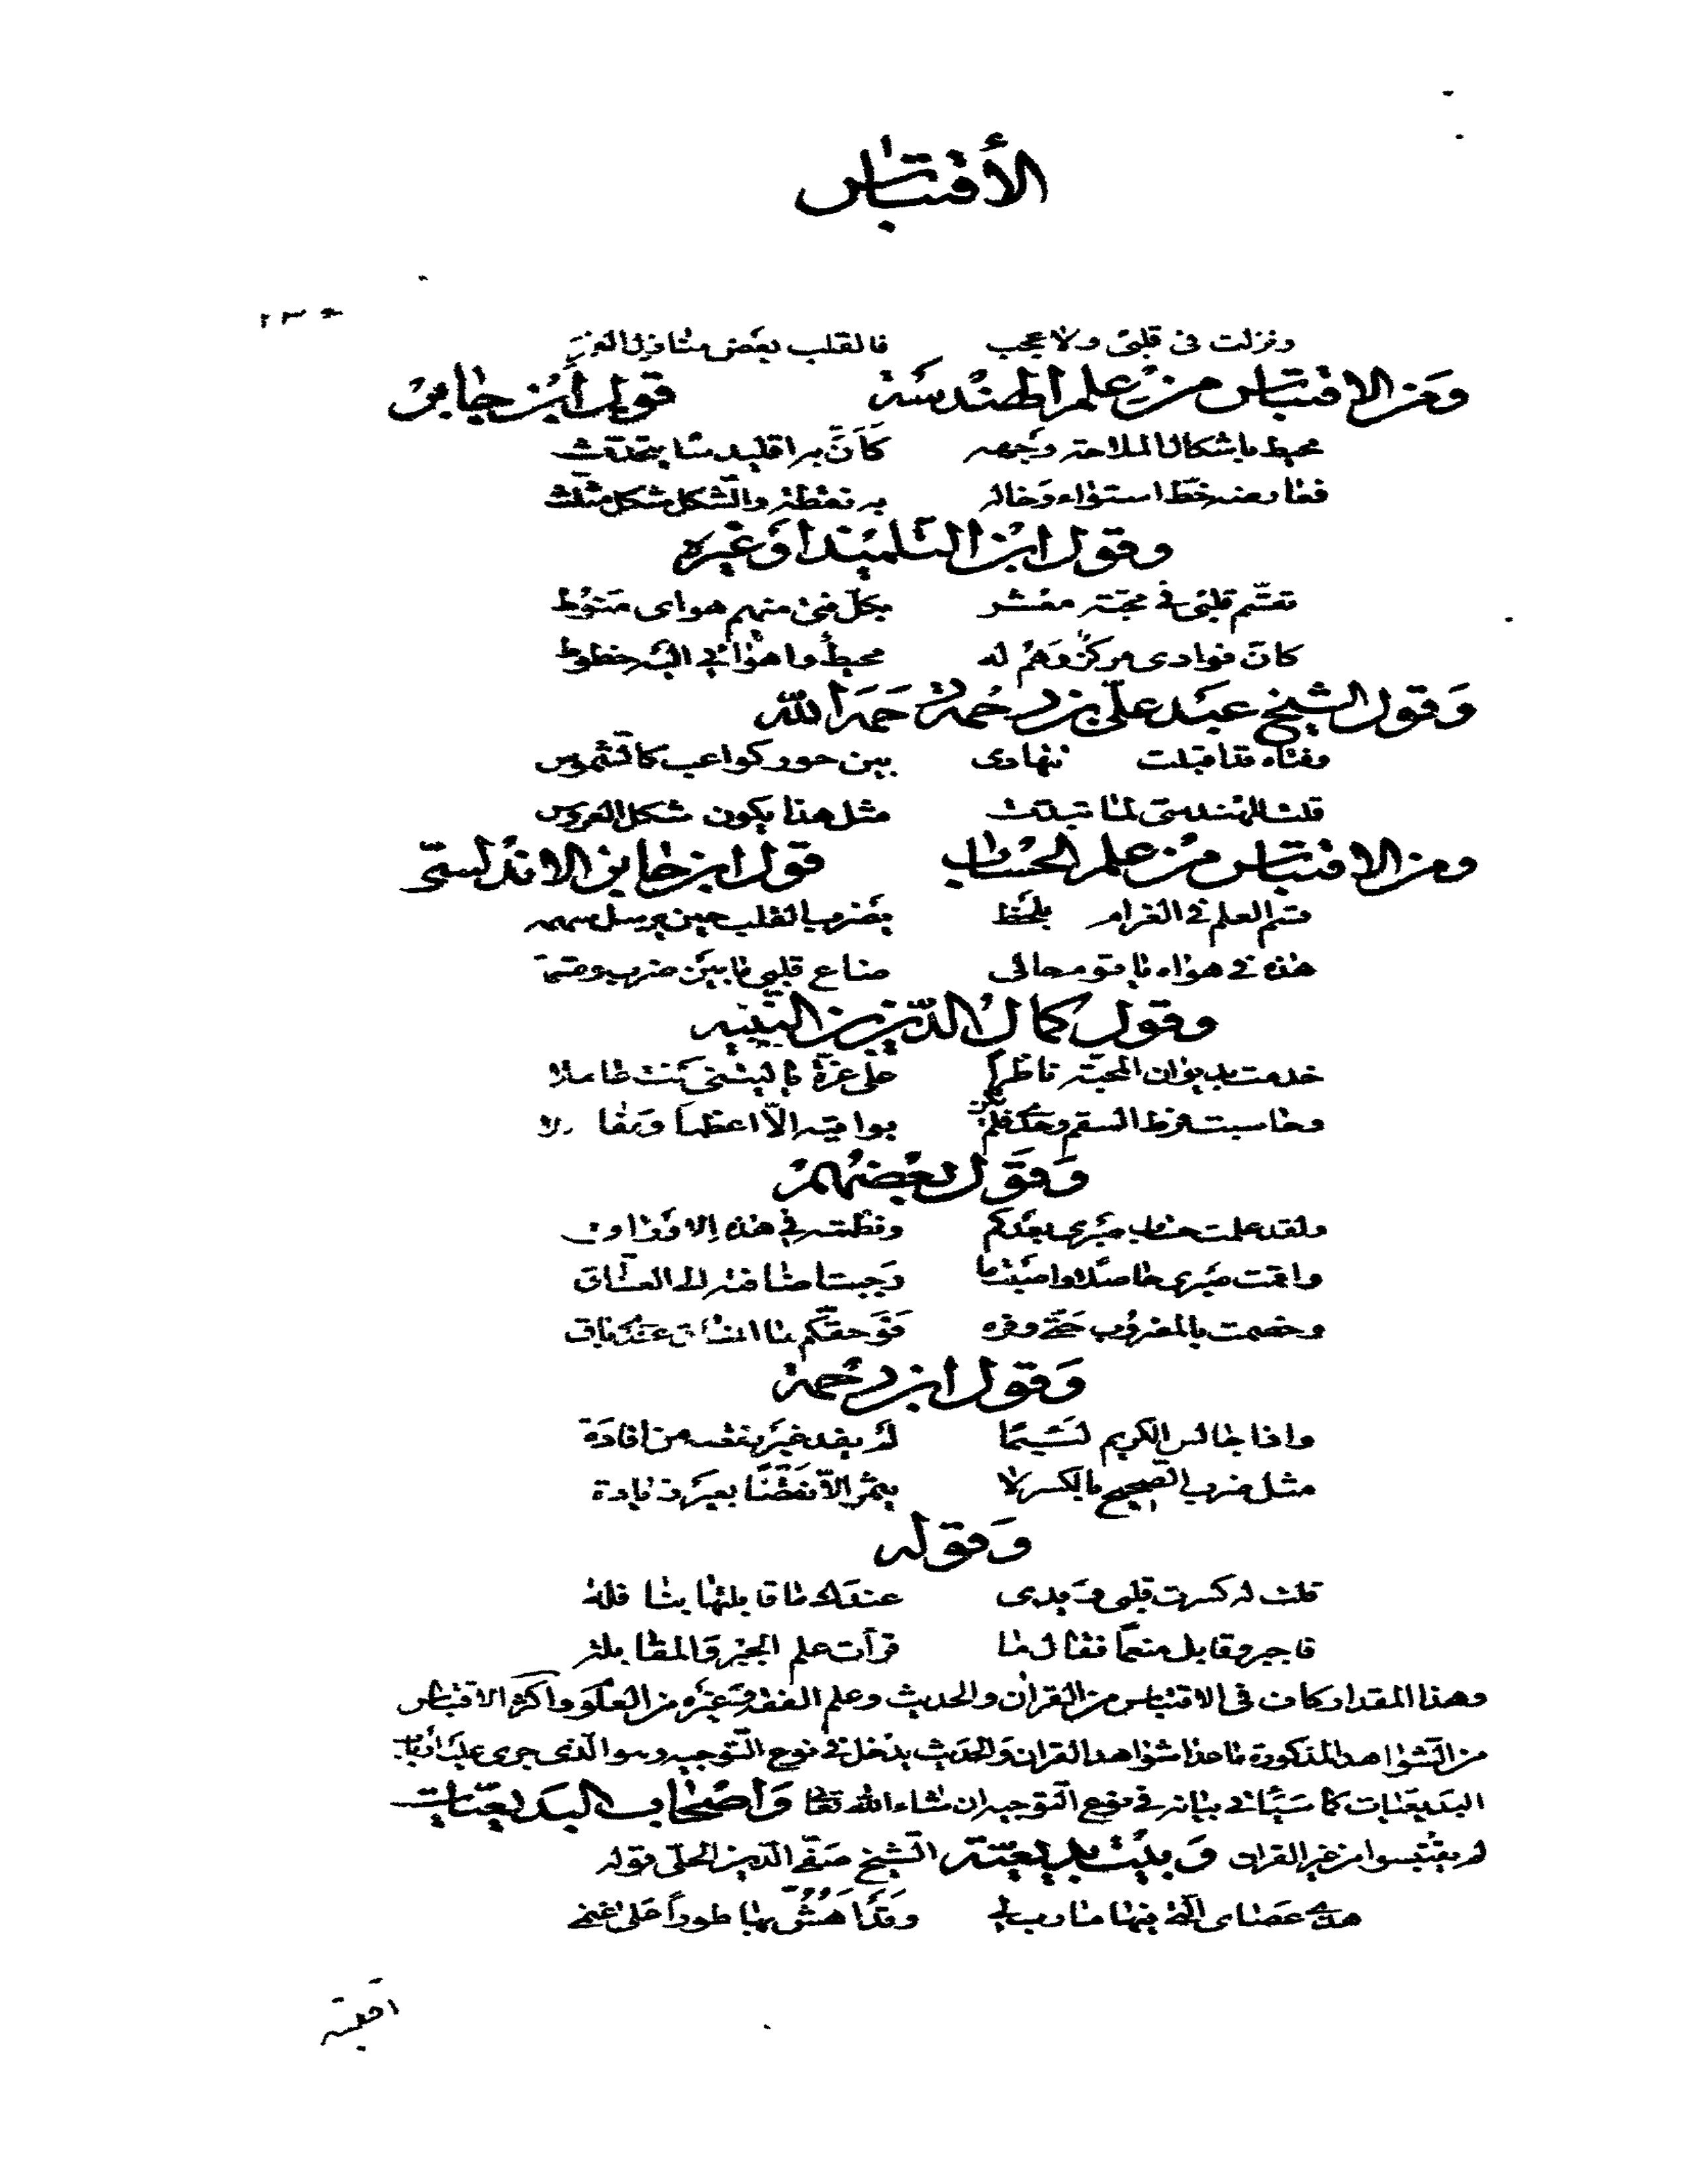 الأقتباس
ونزلت في قلبي ولا عجب فالقلب بعض منازل القمر
ومن الاقتباس من علم الهندسة قول ابن جابر
محيط باشكال الملاحة وجهه كأن به اقليدسا يتحدث
فعارضه خط استواء وخاله به نقطة والشكل شكل مثلث
وقول ابن التلميذ او غيره
تقسم قلبي في محبة معشر بكل فتى منهم هواى منوط
كان فوادى مركز وهم له محيط واهوائي اليه خطوط
وقول الشيخ عبد علي بن رحمة رحمه الله
وفتاة قد اقبلت تتهادى بين حور كواعب كالشموس
قلت للهندسي لما تبدت مثل هذا يكون شكل العروس
ومن الاقتباس من علم الحساب قول ابن جابر الاندلسي
قسم العلم في الغرام بلحظ يضرب القلب حين يرسل سهمه
هذه في هواه يا قوم حالى ضاع قلبي ما بين ضرب وقسمة
وقول كمال الدين بن النبيه
خدمت بديوان المحبة ناظرا على غرة يا ليتني كنت عاملا
وحاسبت فرط السقم وحكم فلم يكن بواقيه الا اعظما ومفا صلا
وقول بعضهم
ولقد علمت حساب صبري بعدكم ونظمته في هذه الاوراق
واقمت صبري حاصلا واضفت ما وجبت اضافته الى العشاق
وخصمت بالمضروب حتى وفره فوحقكم ما انساق عندى باق
وقول ابن رحمة
واذا جالس الكريم لئيما لم يفد غير نقصه من افادة
مثل ضرب الصحيح بالكسر لا يثمر الا نقصا بغير زيادة
وقوله
قلت له كسرت قلبي ويدى عندك ما قابلتها بنا فله
فاجبر وقابل منعما فقال ما قرأت علم الجبر والمقابلة
وهذا المقدار كاف في الاقتباس من القران والحديث وعلم الفقه وغيره من العلوم واكثر الاقتباس
من الشواهد المذكورة ما عدا شواهد القران والحديث يدخل في نوع التوجيه وهو الذي جرى عليه ارباب
البديعيات كما سيأتي بيانه في نوع التوجيه ان شاء الله تعالى واصحاب البديعيات
لم يقتبسوا من غير القران وبيت بديعية الشيخ صفي الدين الحلي قوله
هذي عصاى التي فيها مآرب لي وقد اهش بها طورا على غنمي